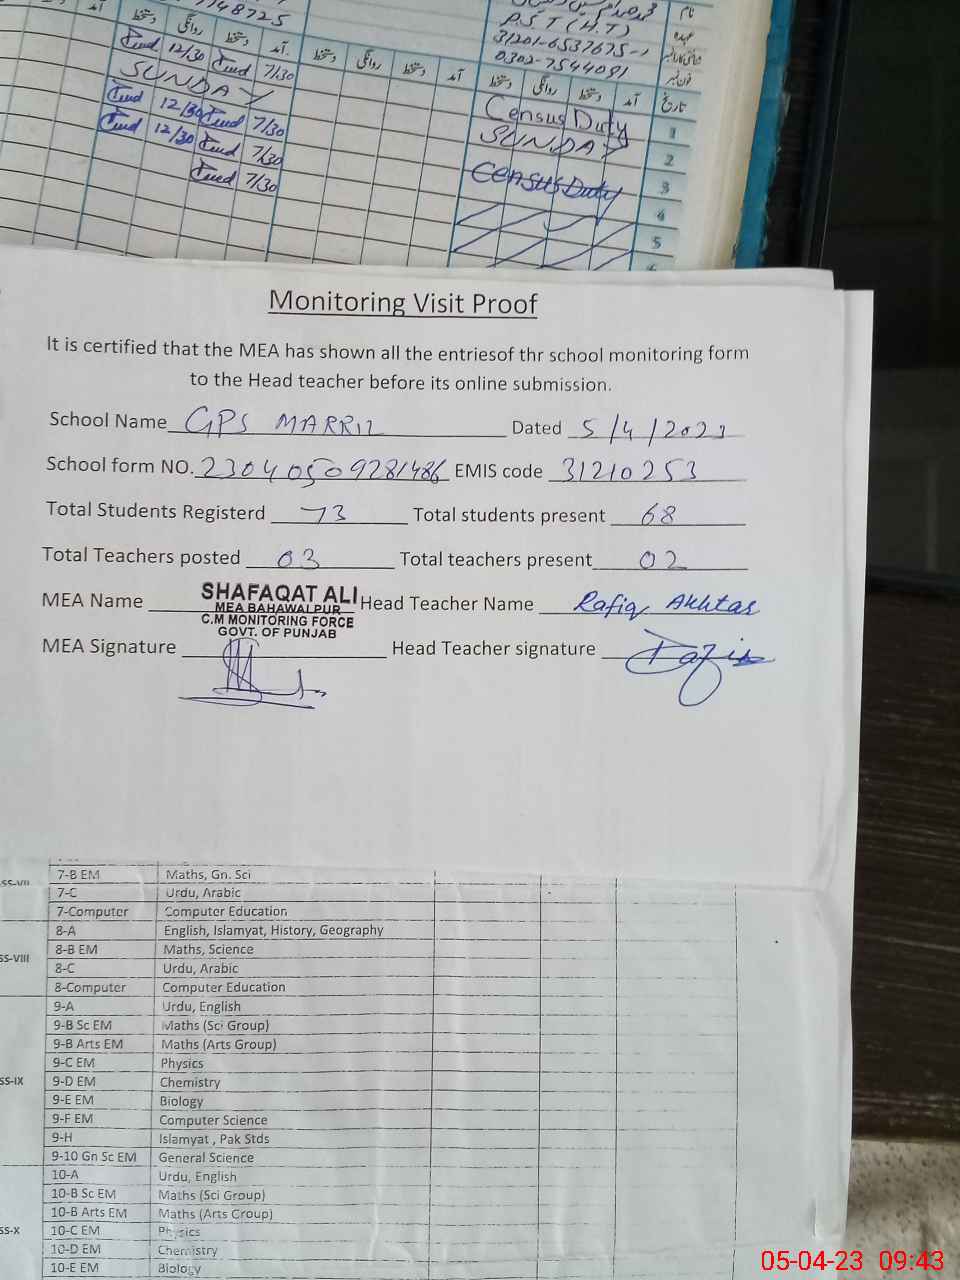 7148725
P.S.T (H.T)
31201-6537675-1
0302-7544091
نام
عہدہ
تاریخ
آمد دستخط روانگی دستخط آمد دستخط روانگی دستخط
12/30 7/30
SUNDAY
12/30 7/30
12/30 7/30
7/30
Census Duty 1
SUNDAY 2
Census Duty 3
4
5
Monitoring Visit Proof
It is certified that the MEA has shown all the entriesof thr school monitoring form
to the Head teacher before its online submission.
School Name GPS MARRIZ Dated 5/4/2023
School form NO. 23040509281486 EMIS code 31210253
Total Students Registerd 73 Total students present 68
Total Teachers posted 03 Total teachers present 02
MEA Name SHAFAQAT ALI Head Teacher Name Rafiq Akhtar
MEA BAHAWALPUR
C.M MONITORING FORCE
GOVT. OF PUNJAB
MEA Signature Head Teacher signature
SS-VII
7-B EM Maths, Gn. Sci
7-C Urdu, Arabic
7-Computer Computer Education
8-A English, Islamyat, History, Geography
SS-VIII 8-B EM Maths, Science
8-C Urdu, Arabic
8-Computer Computer Education
9-A Urdu, English
9-B Sc EM Maths (Sci Group)
9-B Arts EM Maths (Arts Group)
9-C EM Physics
SS-IX 9-D EM Chemistry
9-E EM Biology
9-F EM Computer Science
9-H Islamyat , Pak Stds
9-10 Gn Sc EM General Science
10-A Urdu, English
10-B Sc EM Maths (Sci Group)
10-B Arts EM Maths (Arts Group)
SS-X 10-C EM Physics
10-D EM Chemistry
10-E EM Biology
05-04-23 09:43